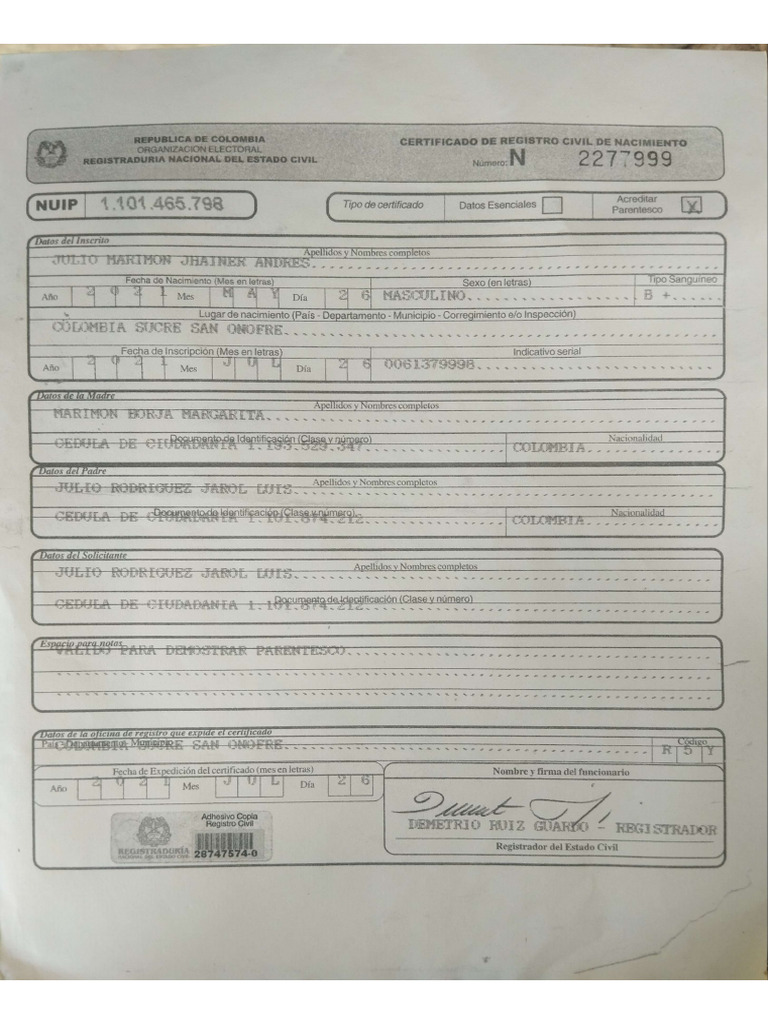 REPUBLICA DE COLOMBIA
ORGANIZACION ELECTORAL
REGISTRADURIA NACIONAL DEL ESTADO CIVIL
CERTIFICADO DE REGISTRO CIVIL DE NACIMIENTO
Número: N 2277999
NUIP 1.101.465.798
Tipo de certificado Datos Esenciales Acreditar Parentesco X
Datos del Inscrito
Apellidos y Nombres completos
JULIO MARIMON JHAINER ANDRES
Fecha de Nacimiento (Mes en letras) Sexo (en letras) Tipo Sanguineo
Año 2021 Mes MAY Día 26 MASCULINO B +
Lugar de nacimiento (País - Departamento - Municipio - Corregimiento e/o Inspección)
COLOMBIA SUCRE SAN ONOFRE
Fecha de Inscripción (Mes en letras) Indicativo serial
Año 2021 Mes JUL Día 26 0061379998
Datos de la Madre
Apellidos y Nombres completos
MARIMON BORJA MARGARITA
Documento de Identificación (Clase y número) Nacionalidad
CEDULA DE CIUDADANIA 1.193.529.347 COLOMBIA
Datos del Padre
Apellidos y Nombres completos
JULIO RODRIGUEZ JAROL LUIS
Documento de Identificación (Clase y número) Nacionalidad
CEDULA DE CIUDADANIA 1.101.874.212 COLOMBIA
Datos del Solicitante
Apellidos y Nombres completos
JULIO RODRIGUEZ JAROL LUIS
Documento de Identificación (Clase y número)
CEDULA DE CIUDADANIA 1.101.874.212
Espacio para notas
VALIDO PARA DEMOSTRAR PARENTESCO
Datos de la oficina de registro que expide el certificado
País - Departamento - Municipio Código
COLOMBIA SUCRE SAN ONOFRE R5Y
Fecha de Expedición del certificado (mes en letras)
Año 2021 Mes JUL Día 26
Nombre y firma del funcionario
DEMETRIO RUIZ GUARDO - REGISTRADOR
Registrador del Estado Civil
Adhesivo Copia
Registro Civil
REGISTRADURÍA
NACIONAL DEL ESTADO CIVIL
28747574-0